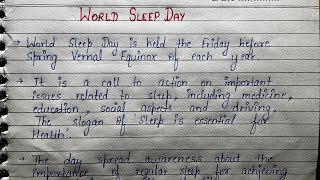 WORLD SLEEP DAY
→ World Sleep Day is held the Friday before
Spring Vernal Equinox of each year
→ It is a call to action on important
issues related to sleep, including medicine,
education, social aspects and driving.
The slogan of 'Sleep is essential for
Health'.
→ The day spread awareness about the
importance of regular sleep for achieving